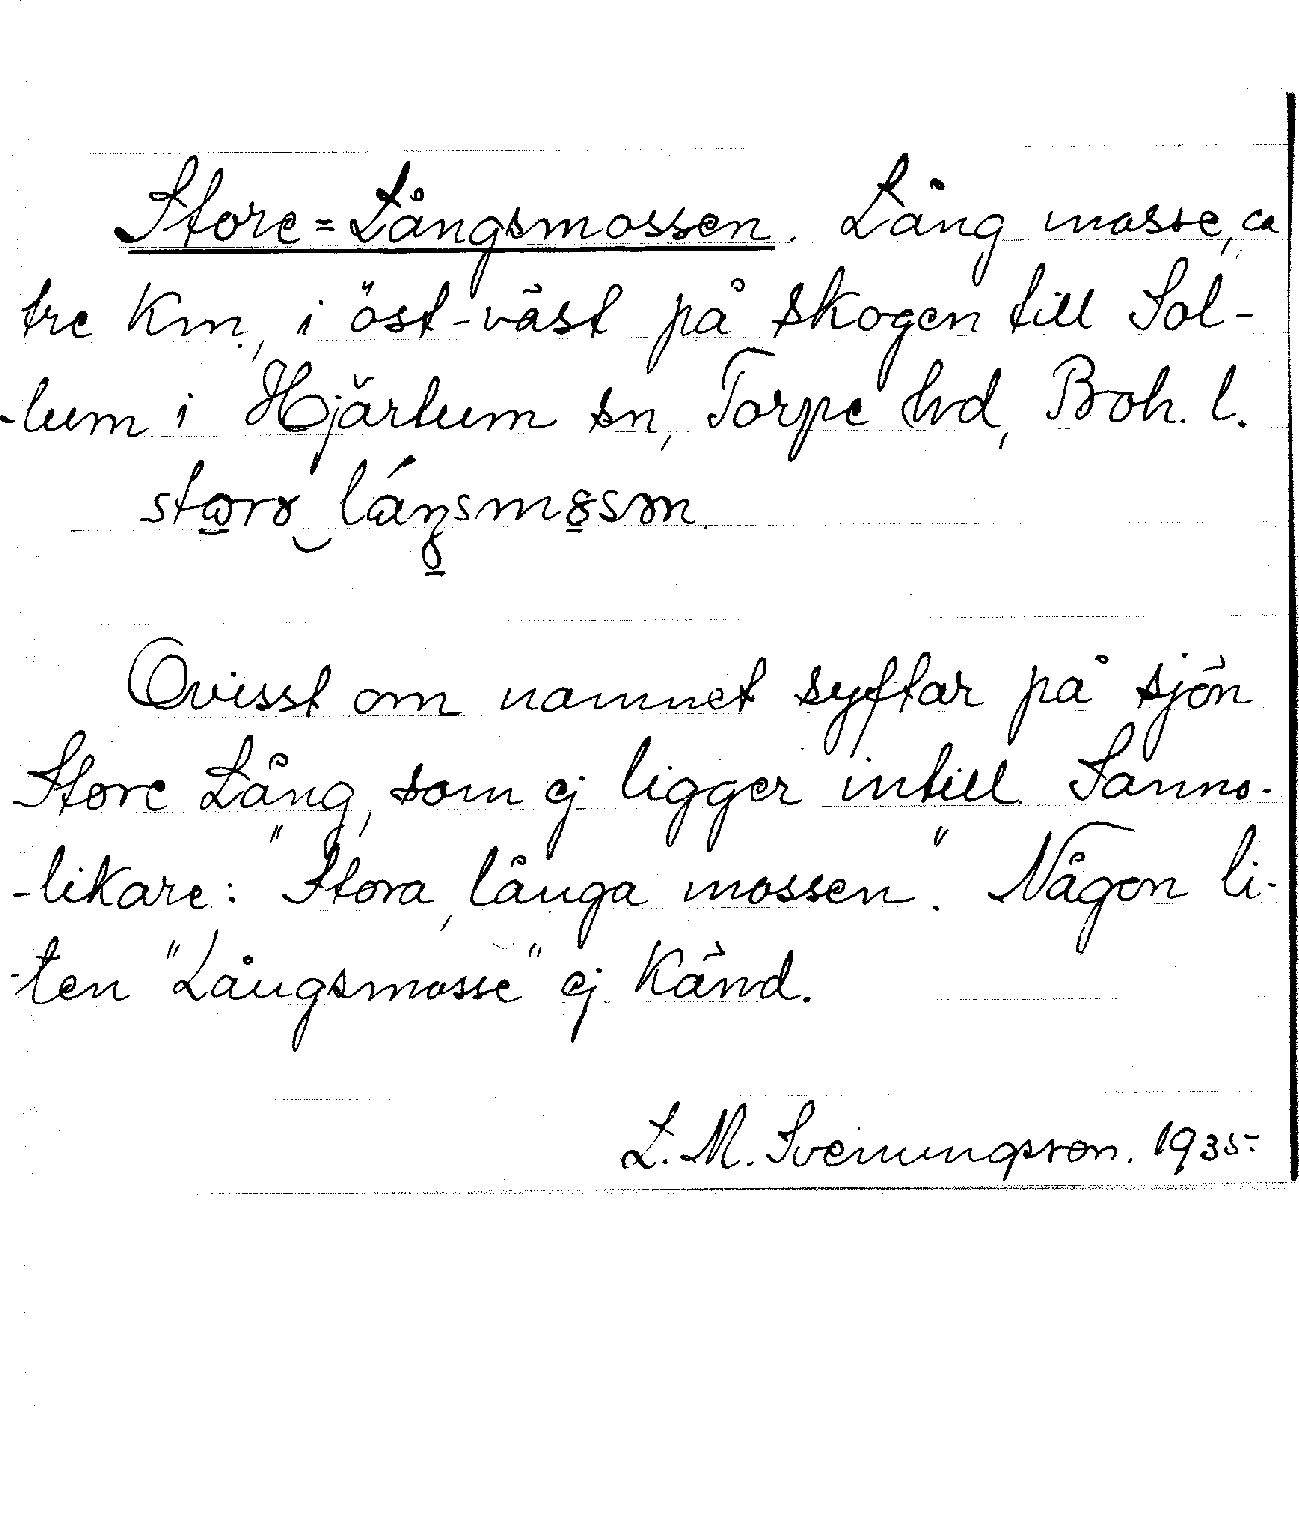 Store=Långsmossen. Lång mosse, ca
tre km., i öst-väst på skogen till Sol-
-lum i Hjärtum sn, Torpe hd, Boh. l.

Ovisst om namnet syftar på sjön
Store Lång, som ej ligger intill. Sanno-
-likare: "Stora, långa mossen". Någon li-
-ten "Långsmosse" ej känd.
L. M. Svenungsson. 1935.